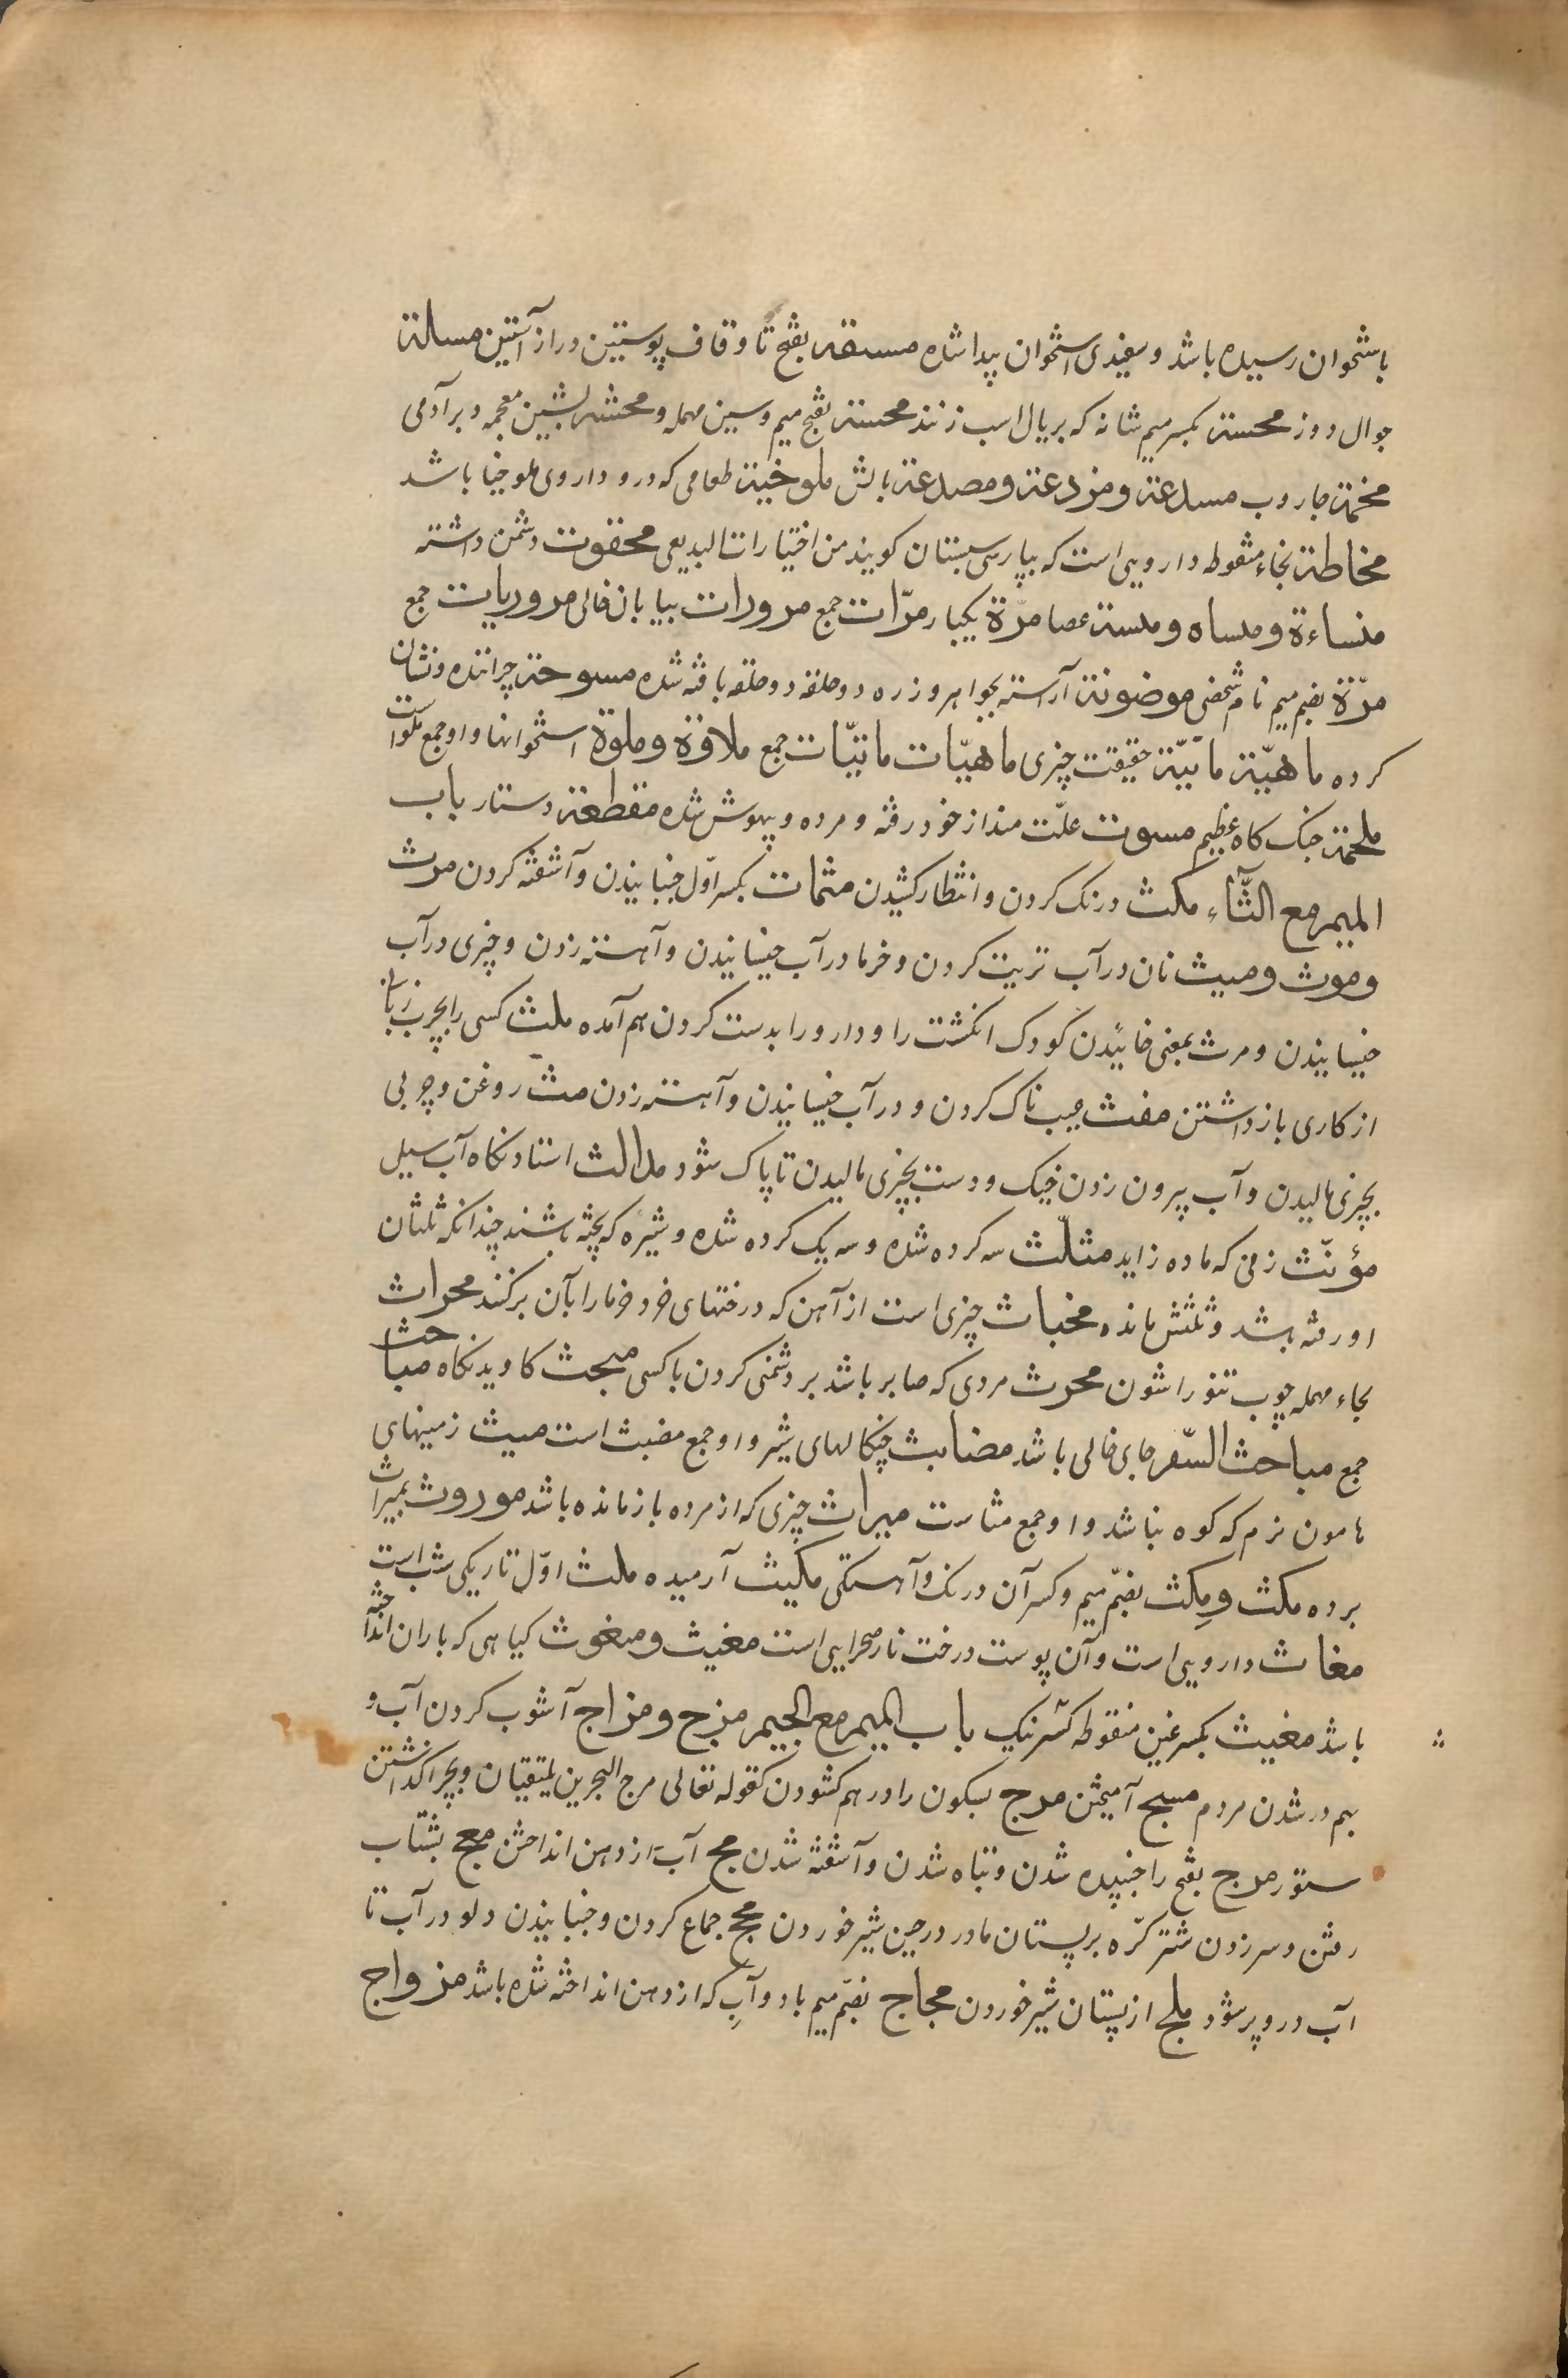 باستخوان رسیده باشد و سفیدی استخوان پیدا شده مستقه بفتح تا و قاف پوستین دراز آستین مسالة
جوال دوز محسة بکسر میم شانه که بر یال اسب زنند محسة بفتح میم و سین مهمله و محشه بشین معجمه دبر آدمی
مخمة جاروب مسدعة و مزدعة و مصدعة بالش ملوخیة طعامی که درو داروی ملوخیا باشد
مخاطة بخاء منقوطه دارویی است که بپارسی سپستان کویند من اختیارات البدیعی محقوت دشمن داشته
منساءة و منساه و منسة عصا مرّة یکبار مرّات جمع مرورات بیابان خالی مروریات جمع
مرّة بضم میم نام شخصی موضونة آراسته بجواهر و زره دو حلقه دو حلقه بافته شده مسوحة چراننده و نشان
کرده ماهیّة مائیّة حقیقت چیزی ماهیّات مائیّات جمع ملاقة و ملوة استخوانها و او جمع ملوات است
ملحمة جنک کاه عظیم مسوت علّت مند از خود رفته و مرده و بیهوش شده مقطعة دستار باب
المیم مع الثّاء مکث درنک کردن و انتظار کشیدن مثمات بکسر اوّل جنبانیدن و آشفته کردن مرث
و موث و میث نان در آب تریت کردن و خرما در آب خیسانیدن و آهسته زدن و چیزی در آب
خیسانیدن و مرث بمعنی خائیدن کودک انکشت را و دارو را بدست کردن هم آمده ملث کسی را بچرب زبانی
از کاری باز داشتن مغث عیب ناک کردن و در آب خیسانیدن و آهسته زدن مث روغن و چربی
بچیزی مالیدن و آب بیرون زدن خیک و دست بچیزی مالیدن تا پاک شود مدالث استادنکاه آب سیل
مؤنّث زنی که ماده زاید مثلّث سه کرده شده و سه یک کرده شده و شیره که پخته باشند چندانکه ثلثان
او رفته باشد و ثلثش مانده مخباث چیزی است از آهن که درختهای خرد خرما را بآن برکنند محراث
بحاء مهمله چوب تنور اشون محرث مردی که صابر باشد بر دشمنی کردن با کسی مبحث کاویدنکاه مباحث
جمع مباحث السّفر جای خالی باشد مضابث چنکالهای شیر و او جمع مضبث است میث زمینهای
هامون نرم که کوه نباشد و او جمع مثاست میراث چیزی که از مرده باز مانده باشد موروث بمیراث
برده مکث و مِکث بضمّ میم و کسر آن درنک و آهستکی مکیث آرمیده ملث اوّل تاریکی شب است
مغاث دارویی است و آن پوست درخت نار صحرایی است مغیث و مغوث کیاهی که باران انداخته
باشد مغیث بکسر غین منقوطه کشرنیک باب المیم مع الجیم مزج و مزاج آشوب کردن آب و
بهم در شدن مردم مسج آمیختن مرج بسکون را در هم کشودن کقوله تعالی مرج البحرین یلتقیان و بچرا کذاشتن
ستور مرج بفتح را جنبیده شدن و تباه شدن و آشفته شدن مج آب از دهن انداختن معج بشتاب
رفتن و سر زدن شتر کرّه بر پستان مادر در حین شیر خوردن مخج جماع کردن و جنبانیدن دلو در آب تا
آب درو پر شود ملج از پستان شیر خوردن مجاج بضمّ میم باد و آبِ که از دهن انداخته شده باشد مزواج